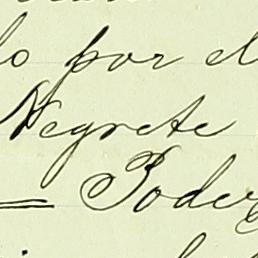 lo por el
Negrete
= Poder